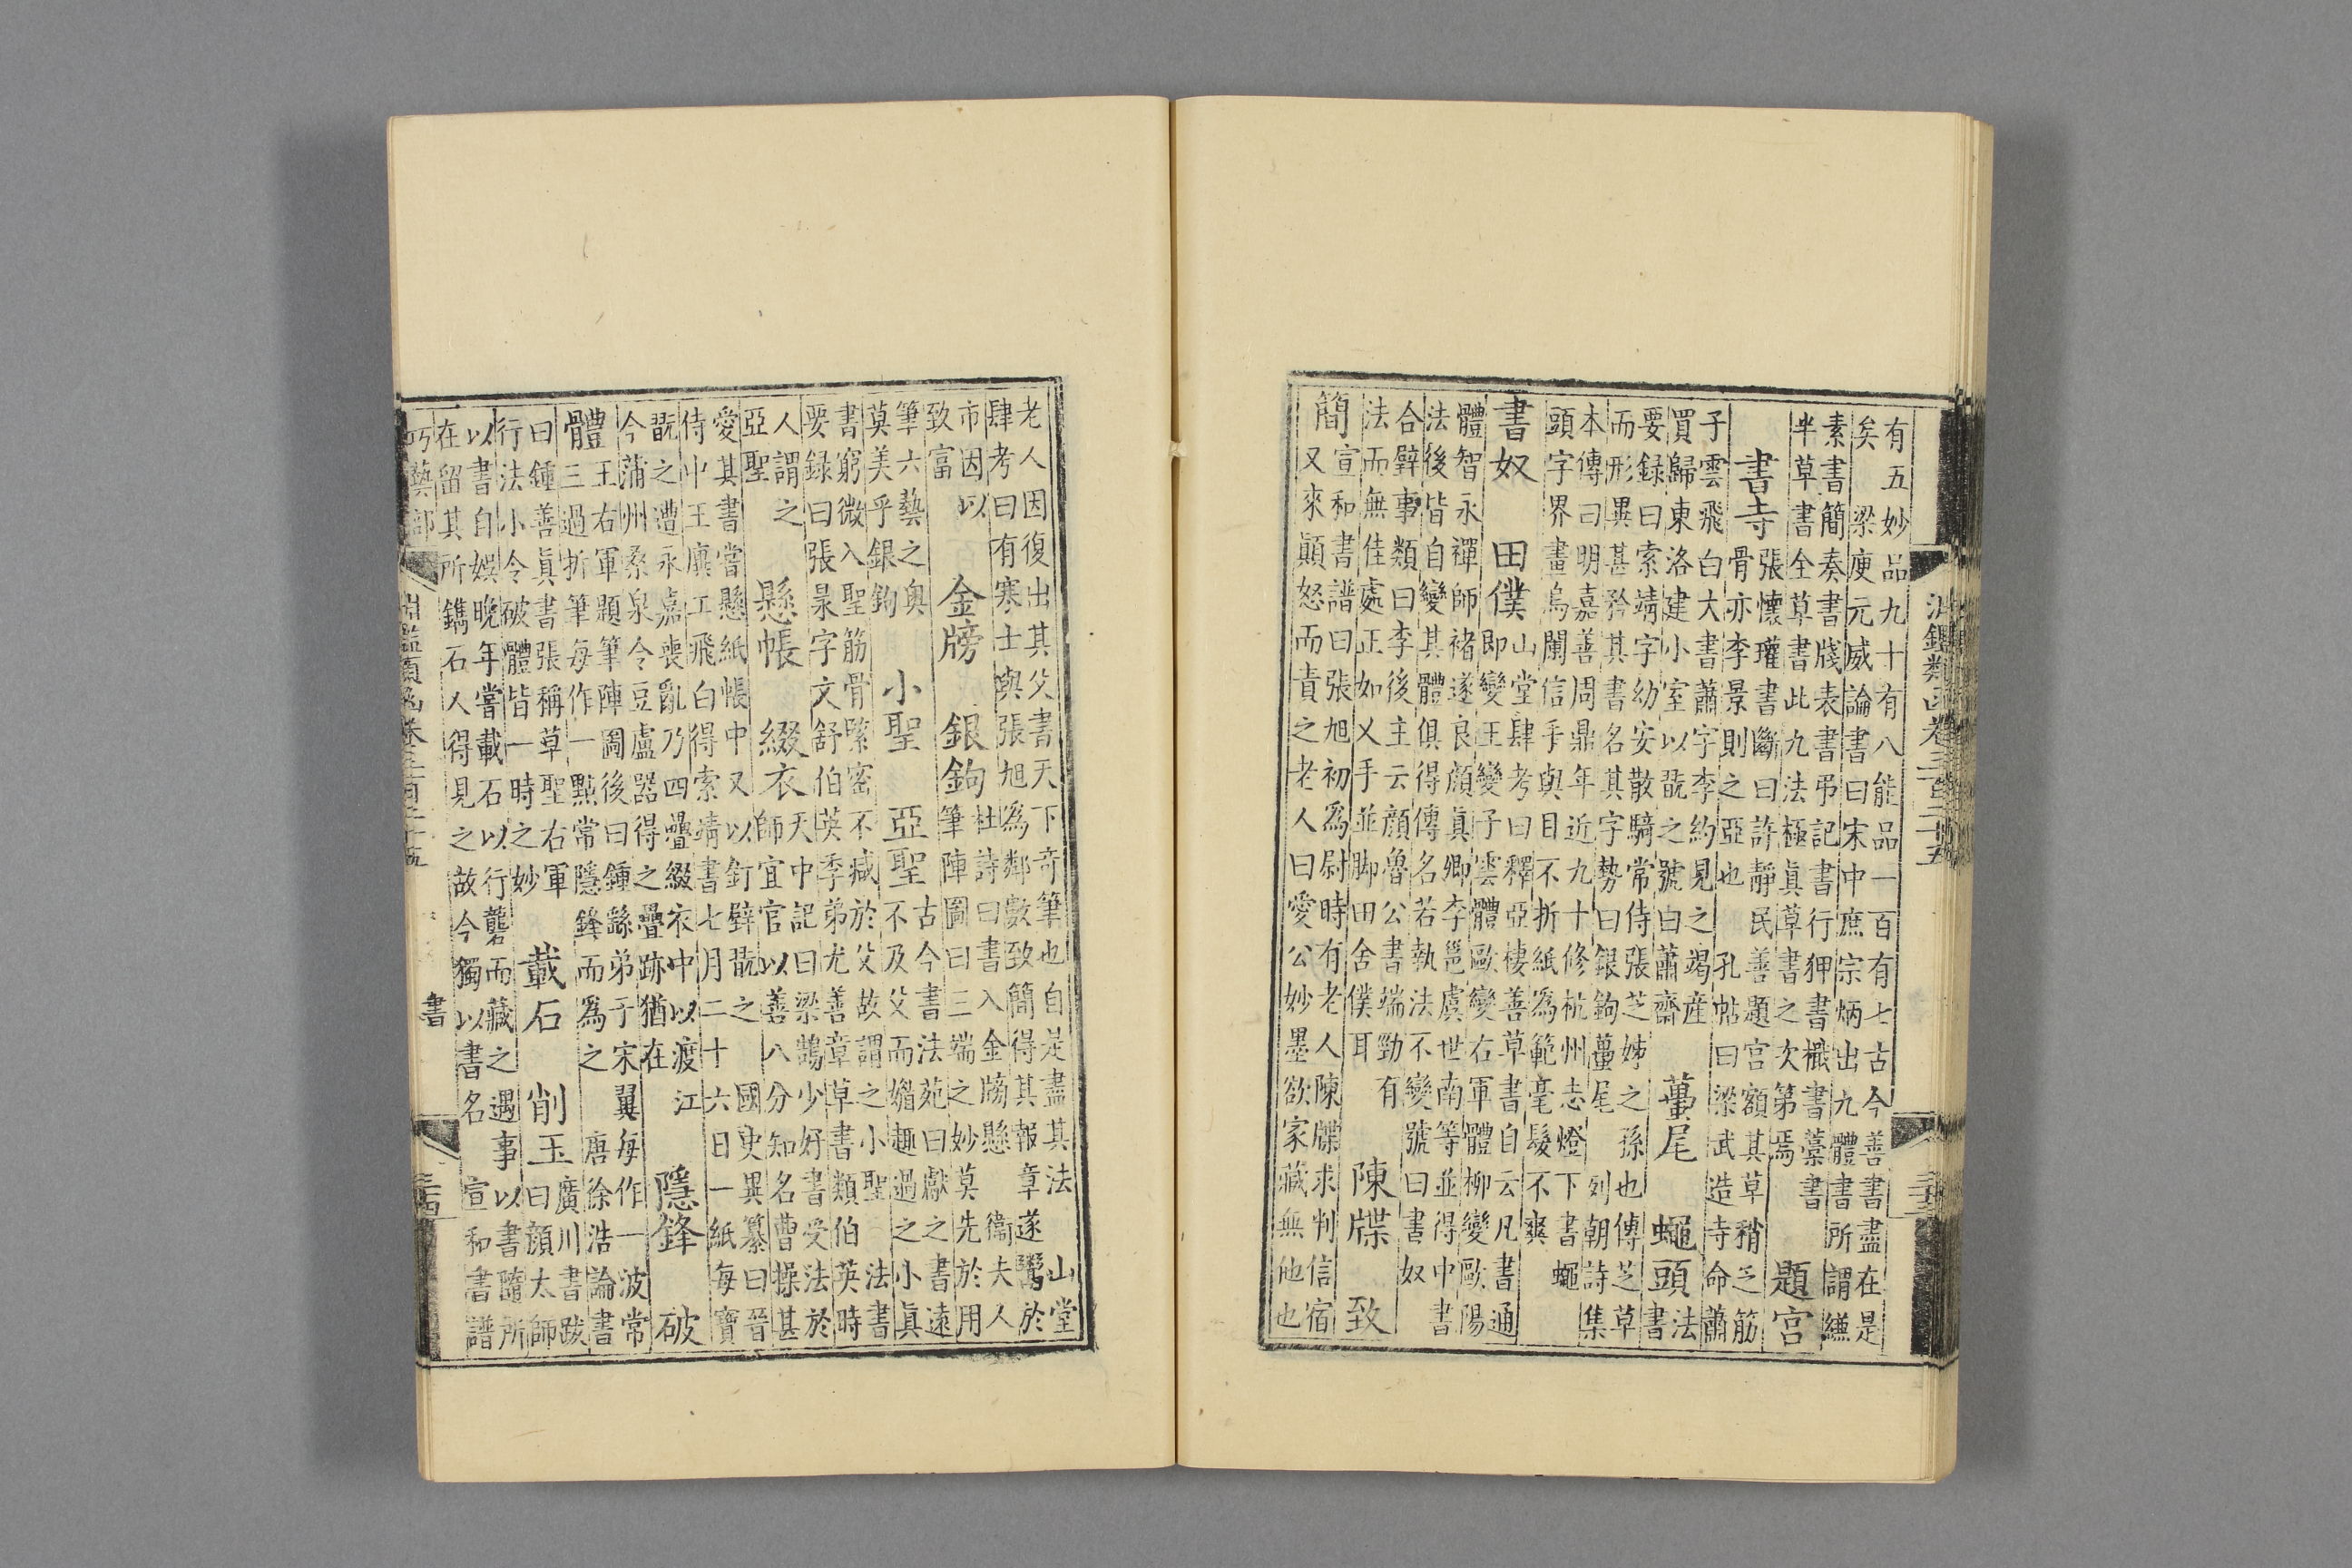 淵鑑類函卷三百二十五
有五妙品九十有八能品一百有七古今善書盡在是
矣 梁庾元威論書曰宋中庶宗炳出九體書所謂縑
素書簡奏書牋表書弔記書行狎書檝書藁書
半草書全草書此九法極眞草書之次第焉
題宮
書寺
張懷瓘書斷曰許靜民善題宮額其草稍乏筋
骨亦李景則之亞也 孔帖曰梁武造寺命蕭
子雲飛白大書蕭字李約見之竭産
買歸東洛建小室以翫之號白蕭齋
蠆尾 蠅頭
法書
要録曰索靖字幼安散騎常侍張芝姊之孫也傳芝草
而形異甚矜其書名其字勢曰銀鉤蠆尾 列朝詩集
本傳曰明嘉善周鼎年近九十修杭州志燈下書蠅
頭字界畫烏闌信手與目不折紙爲範毫髮不爽
書奴 田僕
山堂肆考曰釋亞棲善草書自云凡書通
即變王變子雲體歐變右軍體柳變歐陽
體智永禪師褚遂良顔眞卿李邕虞世南等並得中書
法後皆自變其體俱得傳名若執法不變號曰書奴
合璧事類曰李後主云顔魯公書端勁有
法而無佳處正如乂手並脚田舍僕耳
陳牒 致
簡
宣和書譜曰張旭初爲尉時有老人陳牒求判信宿
又來顛怒而責之老人曰愛公妙墨欲家藏無他也
老人因復出其父書天下竒筆也自是盡其法 山堂
肆考曰有寒士與張旭爲鄰數致簡得其報章遂鬻於
市因以
致富
金牓 銀鉤
杜詩曰書入金牓懸 衞夫人
筆陣圖曰三端之妙莫先於用
筆六藝之奥
莫美乎銀鉤
小聖 亞聖
古今書法苑曰獻之書遠
不及父而媚趣過之小眞
書窮微入聖筋骨緊密不臧於父故謂之小聖 法書
要録曰張㫤字文舒伯英季弟尤善章草書類伯英時
人謂之
亞聖
懸帳 綴衣
天中記曰梁鵠少好書受法於
師宜官以善八分知名曹操甚
愛其書嘗懸紙帳中又以釘壁翫之 國史異纂曰晉
侍中王廙工飛白得索靖書七月二十六日一紙每寶
翫之遭永嘉喪亂乃四疊綴衣中以渡江
今蒲州桑泉令豆盧器得之疊跡猶在
隱鋒 破
體
王右軍題筆陣圖後曰鍾繇弟子宋翼每作一波常
三過折筆每作一點常隱鋒而爲之 唐徐浩論書
曰鍾善眞書張稱草聖右軍
行法小令破體皆一時之妙
載石 削玉
廣川書跋
曰顔太師
以書自娛晚年嘗載石以行礱而藏之遇事以書隨所
在留其所鐫石人得見之故今獨以書名 宣和書譜
巧藝部
書